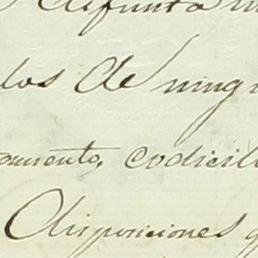 difunta
los de ning
amento, codicil
Disposiciones q